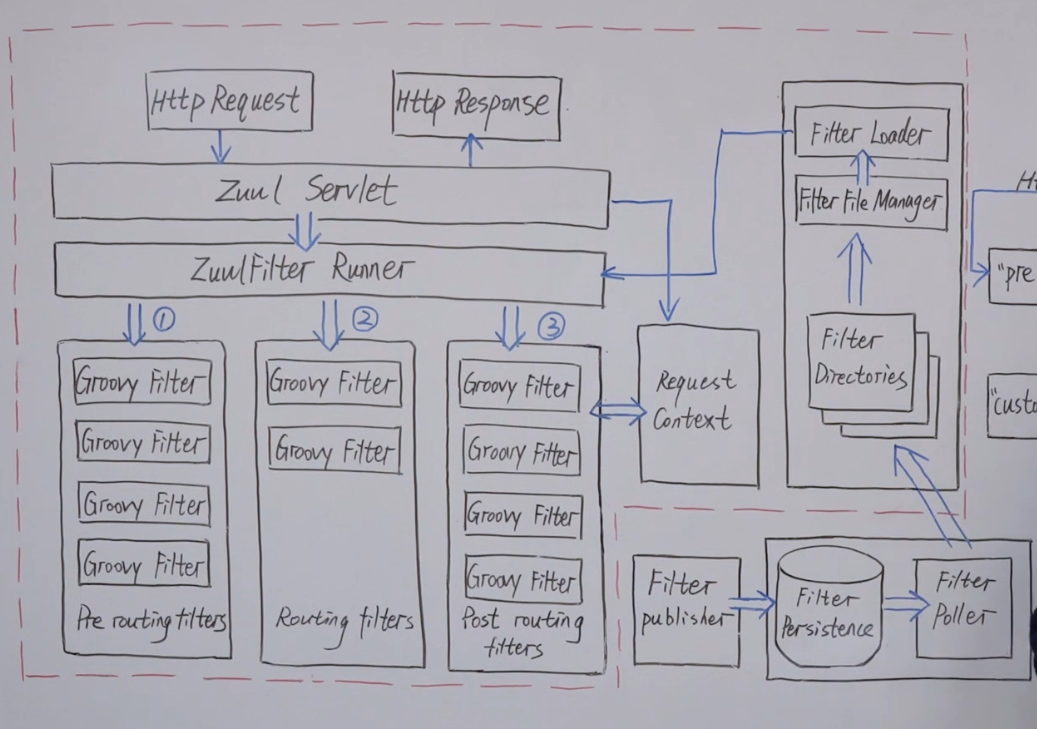 Http Request
Http Response
Zuul Servlet
ZuulFilter Runner
①
②
③
Groovy Filter
Groovy Filter
Groovy Filter
Groovy Filter
Pre routing filters
Groovy Filter
Groovy Filter
Routing filters
Groovy Filter
Groovy Filter
Groovy Filter
Groovy Filter
Post routing
filters
Request
Context
Filter Loader
Filter File Manager
Filter
Directories
Filter
publisher
Filter
Persistence
Filter
Poller
"pre
"custo